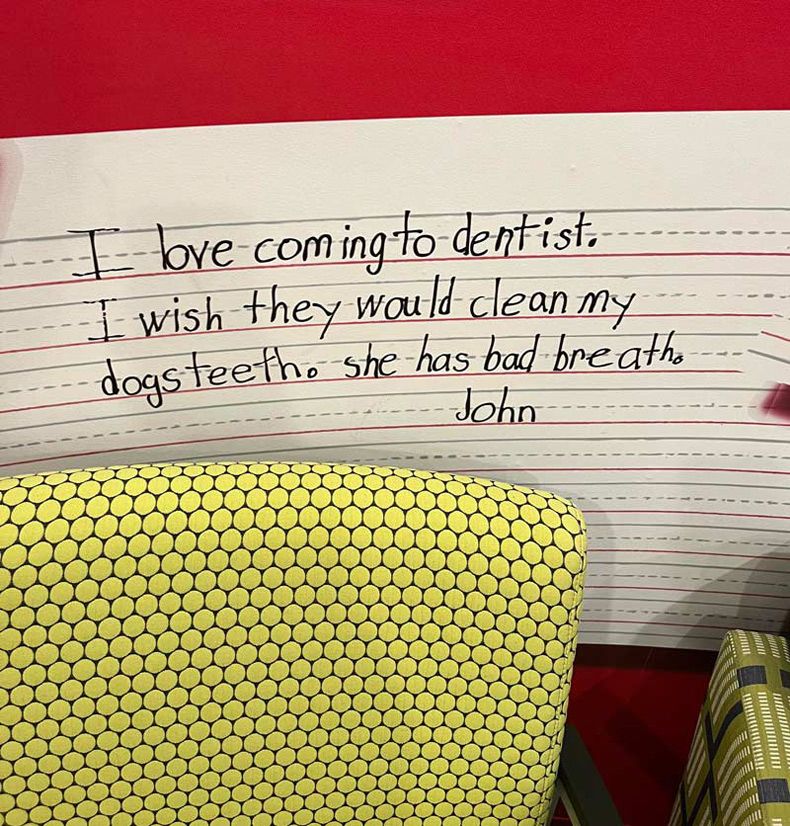 I love coming to dentist.
I wish they would clean my
dogs teeth. she has bad breath.
John